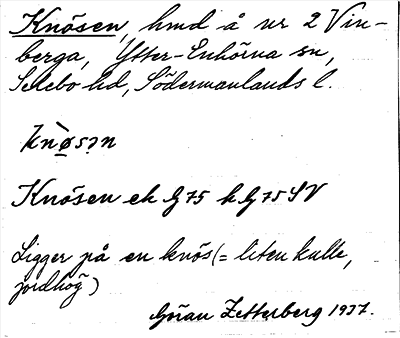 Knösen, hmd å nr 2 Vin-
berga, Ytter-Enhörna sn,
Selebo hd, Södermanlands l.
knø̀sən
Knösen ek G 75 h G 75 SV
Ligger på en knös (= liten kulle,
jordhög)
Göran Zetterberg 1937.